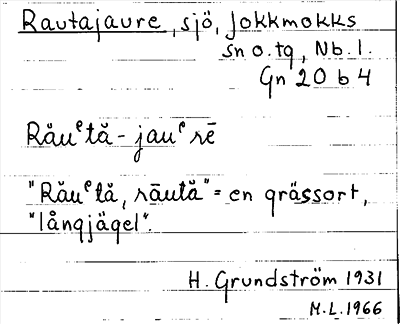 Rautajaure, sjö, Jokkmokks
sn o. tg, Nb. l.
Gn 20 b 4
Răuᵉtă - jauᵉrē
"Răuᵉtă, rāută" = en grässort,
"långjägel".
H. Grundström 1931
M.L. 1966